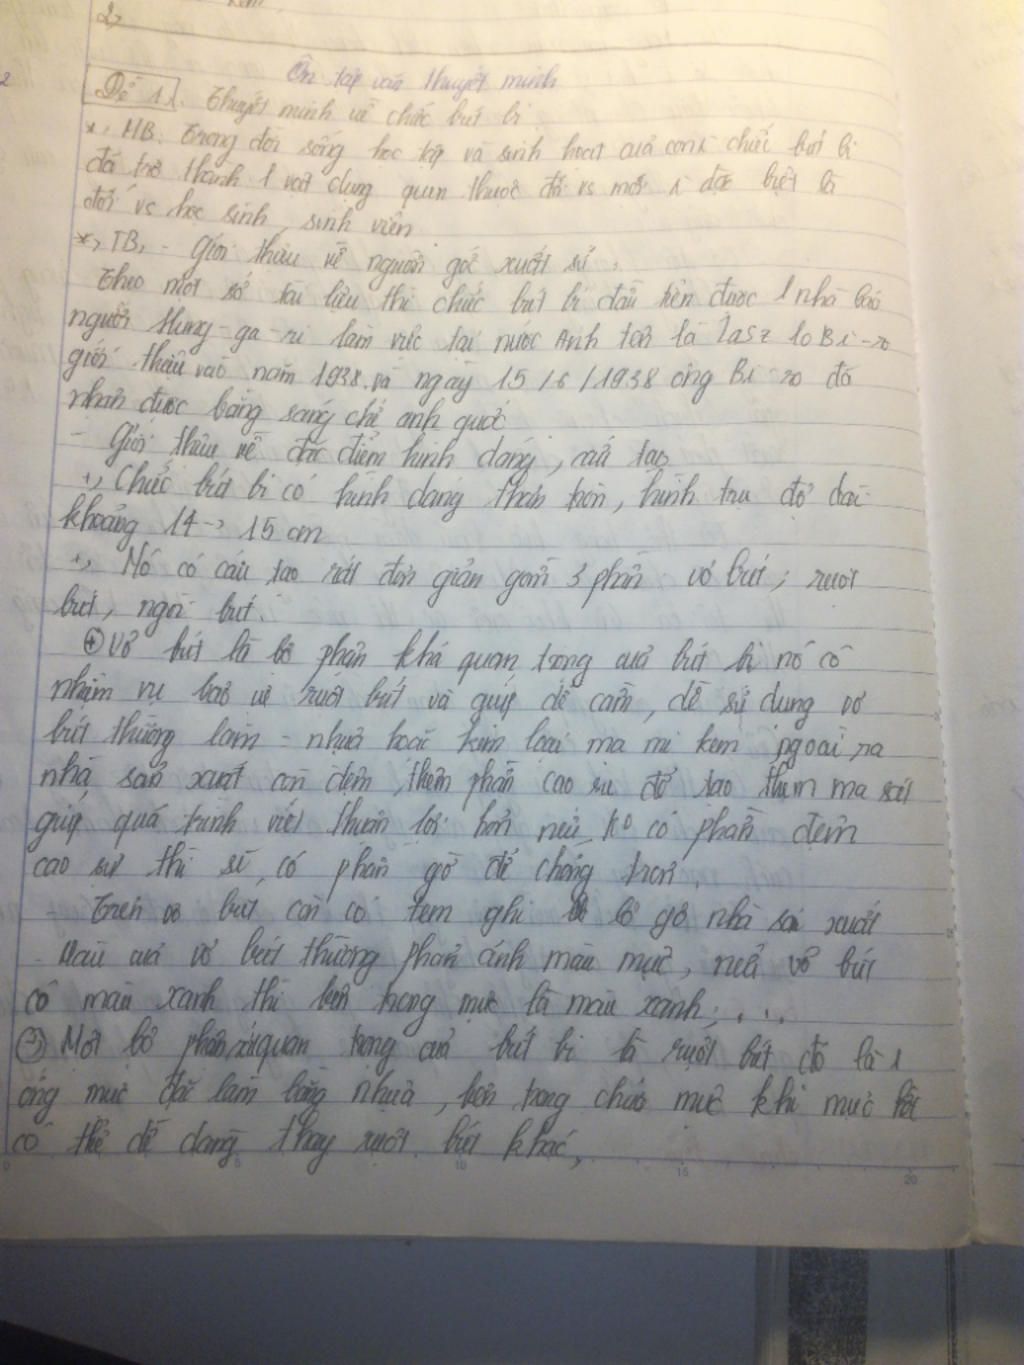 2,
Ôn tập văn thuyết minh
Đề 1: Thuyết minh về chiếc bút bi
*, MB: Trong đời sống học tập và sinh hoạt của con chiếc bút bi
đã trở thành 1 vật dụng quen thuộc đối vs mỗi đặc biệt là
đối vs học sinh, sinh viên
*, TB, - Giới thiệu về nguồn gốc xuất sứ.
Theo một số tài liệu thì chiếc bút bi đầu tiên được 1 nhà báo
người Hung-ga-ri làm việc tại nước Anh tên là Lasz lo Bi-ro
giới thiệu vào năm 1938. và ngày 15/6/1938 ông Bi-ro đã
nhận được bằng sáng chế anh quốc
- Giới thiệu về đặc điểm hình dáng, cấu tạo
+, Chiếc bút bi có hình dáng thon tròn, hình trụ độ dài
khoảng 14 -> 15 cm
+, Nó có cấu tạo rất đơn giản gồm 3 phần: vỏ bút; ruột
bút, ngòi bút.
⊕ Vỏ bút là bộ phận khá quan trọng của bút bi nó có
nhiệm vụ bảo vệ ruột bút và giúp dễ cầm, dễ sử dụng vỏ
bút thường làm = nhựa hoặc kim loại mạ kền ngoài ra
nhà sản xuất còn đệm thêm phần cao su để tạo thêm ma sát
giúp quá trình viết thuận lợi hơn nếu k⁰ có phần đệm
cao su thì sẽ có phần gờ để chống trơn.
- Trên vỏ bút còn có tem ghi nhà sản xuất
- Màu của vỏ bút thường phản ánh màu mực, nếu vỏ bút
có màu xanh thì bên trong mực là màu xanh; ...
Một bộ phận quan trọng của bút bi là ruột bút đó là 1
ống mực đặc làm bằng nhựa, bên trong chứa mực khi mực hết
có thể dễ dàng thay ruột bút khác,
0 5 10 15 20